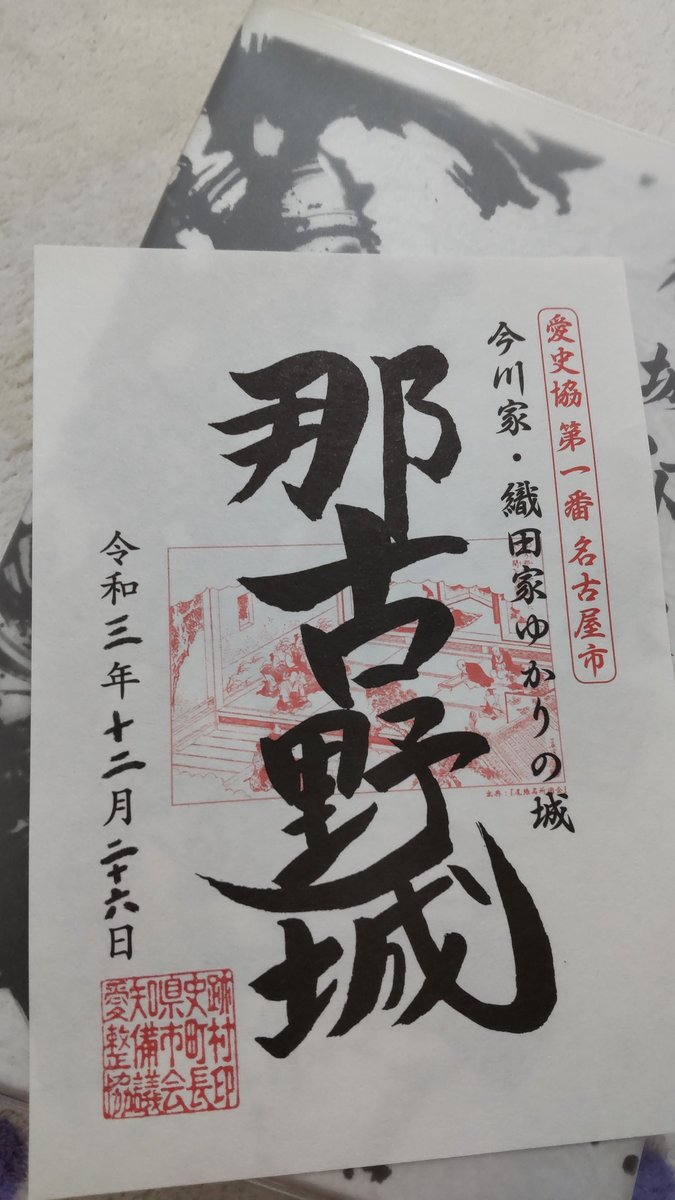 愛史協 第一番 名古屋市
今川家・織田家ゆかりの城
那古野城
出典：「尾張名所図会」
令和三年十二月二十六日
愛知県史跡
整備市町村
協議会長印